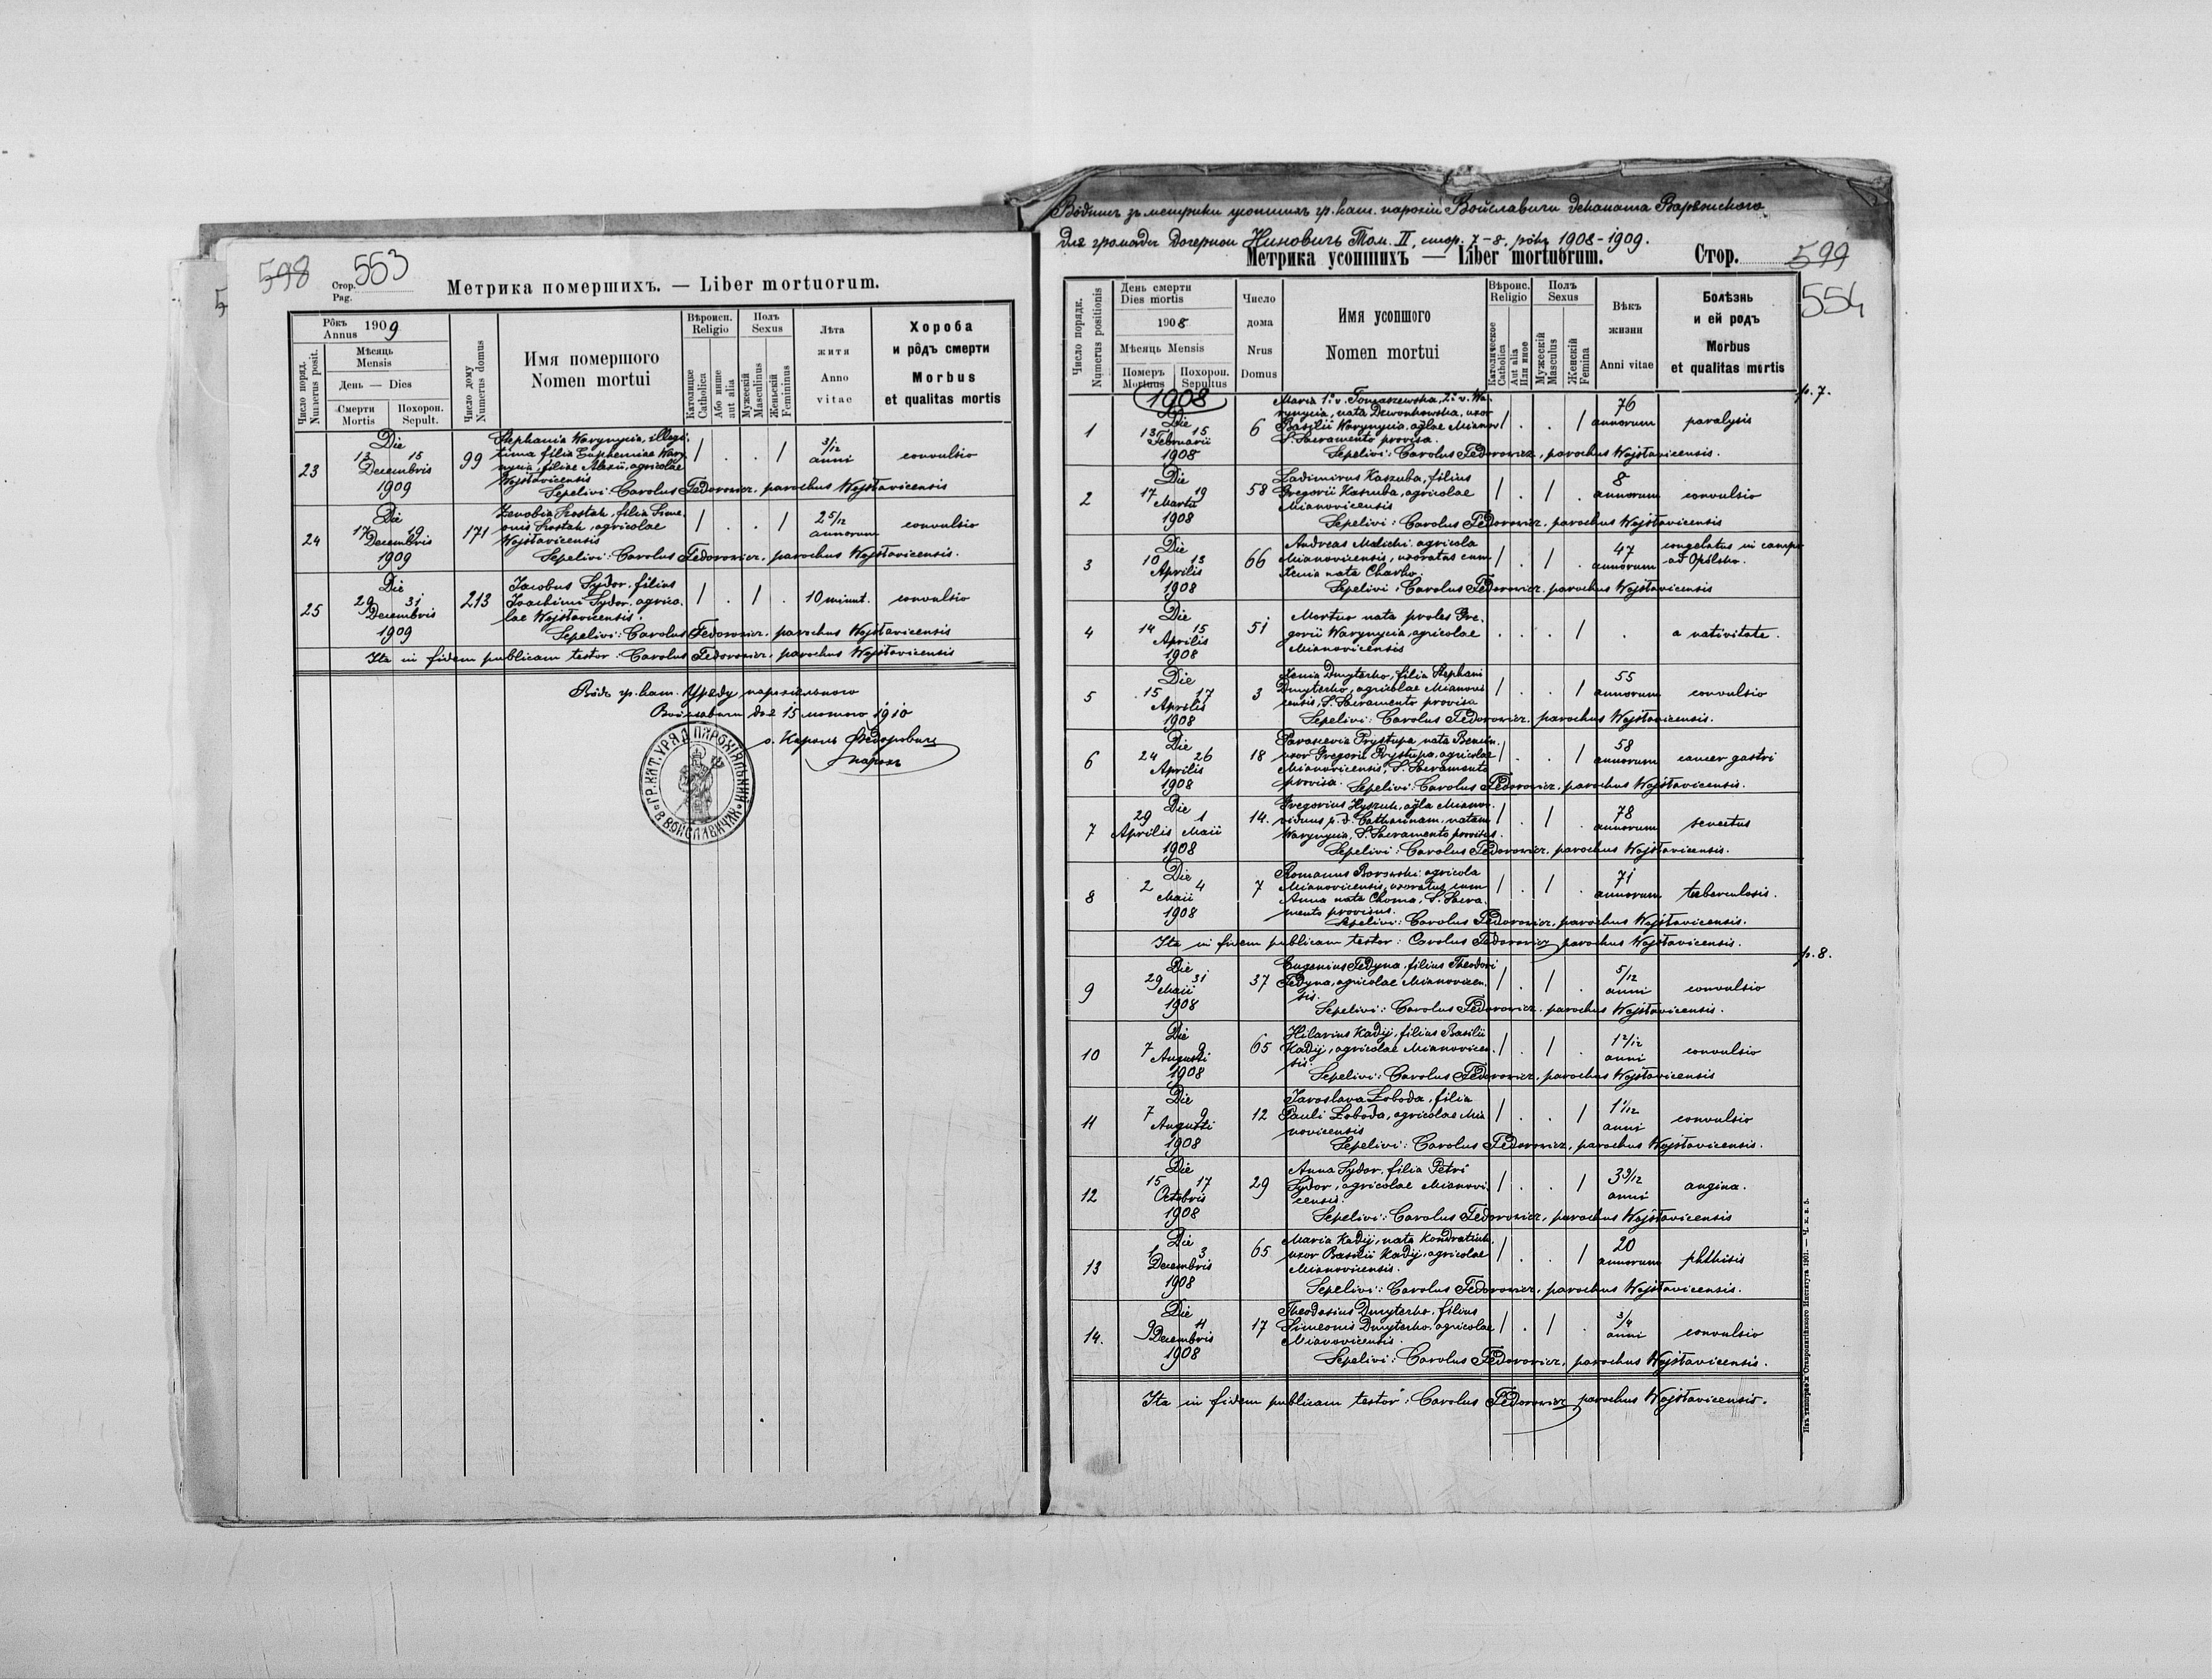 598 553
Стор.
Pag.
Метрика помершихъ. — Liber mortuorum.
Рôкъ
Annus 1909
Число поряд.
Numerus posit.
Мѣсяць
Mensis
День — Dies
Смерти
Mortis
Похорон.
Sepult.
Число дому
Numerus domus
Имя помершого
Nomen mortui
Вѣроисп.
Religio
Католицке
Catholica
Або инше
aut alia
Полъ
Sexus
Мужескій
Masculinus
Женьскій
Femininus
Лѣта
житя
Anno
vitae
Хороба
и рôдъ смерти
Morbus
et qualitas mortis
23 Die 13 15 Decembris 1909 99
Stephania Warynycia, illegi-
tima filia Euphemiae Wary-
nycia, filiae Alexii, agricolae
Wojsławicensis
/ . . / 3/12 anni convulsio
Sepelivi: Carolus Fedorowicz, parochus Wojsławicensis
24 Die 17 19 Decembris 1909 171
Zenobia Szostak, filia Sime-
onis Szostak, agricolae
Wojsławicensis
/ . . / 2 5/12 annorum convulsio
Sepelivi: Carolus Fedorowicz, parochus Wojsławicensis.
25 Die 29 31 Decembris 1909 213
Jacobus Sydor, filius
Joachimi Sydor, agrico-
lae Wojsławicensis.
/ . / . 10 minut. convulsio
Sepelivi: Carolus Fedorowicz, parochus Wojsławicensis
Ita in fidem publicam testor: Carolus Fedorowicz, parochus Wojsławicensis
Вôдъ гр. кат. Уряду парохіяльного
Войславичи дня 15 лютого 1910
о. Кароль Федорович
парох
ГР. КАТ. УРЯД ПАРОХІЯЛЬНИЙ В ВОЙСЛАВИЧАХ
Вôдпис зъ метрики усопших гр. кат. парохіи Войславичи деканата Варяжского
для громади дочернои Нинович Том. II, стор. 7-8, рôкъ 1908-1909.
Метрика усопшихъ — Liber mortuorum. Стор. 599
554
Число порядк.
Numerus positionis
День смерти
Dies mortis
1908
Мѣсяць Mensis
Померъ
Mortuus
Похорон.
Sepultus
Число
дома
Nrus
Domus
Имя усопшого
Nomen mortui
Вѣроис.
Religio
Католическое
Catholica
Aut alia
Или иное
Полъ
Sexus
Мужескій
Masculus
Женскій
Femina
Вѣкъ
жизни
Anni vitae
Болѣзнь
и ей родъ
Morbus
et qualitas mortis
p. 7.
1908
1 Die 13 15 Februarii 1908 6
Maria 1º v. Tomaszewska, 2º v. Wa-
rynycia, nata Dzwonkowska, uxor
Basilii Warynycia, agłae Mianov
S. Sacramento provisa.
/ . . / 76 annorum paralysis
Sepelivi: Carolus Fedorowicz, parochus Wojsławicensis.
2 Die 17 19 Martii 1908 58
Ladimirus Kaszuba, filius
Gregorii Kaszuba, agricolae
Mianovicensis
/ . / . 8 annorum convulsio
Sepelivi: Carolus Fedorowicz, parochus Wojsławicensis
3 Die 10 13 Aprilis 1908 66
Andreas Malicki, agricola
Mianovicensis, uxoratus cum
Xenia nata Charko.
/ . / . 47 annorum congelatus in campo
ad Opilsko.
Sepelivi: Carolus Fedorowicz, parochus Wojsławicensis
4 Die 14 15 Aprilis 1908 51
Mortuo nata proles Gre-
gorii Warynycia, agricolae
Mianovicensis
. . . / . a nativitate.
5 Die 15 17 Aprilis 1908 3
Xenia Dmyterko, filia Stephani
Dmyterko, agricolae Mianovi
censis, S. Sacramento provisa
/ . . / 55 annorum convulsio
Sepelivi: Carolus Fedorowicz, parochus Wojsławicensis.
6 Die 24 26 Aprilis 1908 18
Parascevia Prystupa nata
uxor Gregorii Prystupa, agricolae
Mianovicensis, S. Sacramento
provisa.
/ . . / 58 annorum cancer gastri
Sepelivi: Carolus Fedorowicz, parochus Wojsławicensis.
7 Die 29 1 Aprilis Maii 1908 14.
Gregorius Hyszuk, agła Mianov.
viduus p. d. Catharinam, natam
Warynycia, S. Sacramento provisus.
/ . / . 78 annorum senectus
Sepelivi: Carolus Fedorowicz, parochus Wojsławicensis.
8 Die 2 4 Maii 1908 7
Romanus Borowski agricola
Mianovicensis, uxoratus cum
Anna nata Choma, S. Sacra-
mento provisus.
/ . / . 71 annorum tuberculosis.
Sepelivi: Carolus Fedorowicz, parochus Wojsławicensis.
Ita in fidem publicam testor: Carolus Fedorowicz parochus Wojsławicensis.
p. 8.
9 Die 29 31 Maii 1908 37
Eugenius Fedyna, filius Theodori
Fedyna, agricolae Mianovicen-
sis.
/ . / . 5/12 anni convulsio
Sepelivi: Carolus Fedorowicz, parochus Wojsławicensis.
10 Die 7 9 Augusti 1908 65
Hilarius Kadij, filius Basilii
Kadij, agricolae Mianovicen-
sis.
/ . / . 1 2/12 anni convulsio
Sepelivi: Carolus Fedorowicz, parochus Wojsławicensis
11 Die 7 9 Augusti 1908 12
Jaroslava Łoboda, filia
Pauli Łoboda, agricolae Mia
novicensis
/ . . / 1 1/12 anni convulsio
Sepelivi: Carolus Fedorowicz, parochus Wojsławicensis.
12 Die 15 17 Octobris 1908 29
Anna Sydor, filia Petri
Sydor, agricolae Mianovi-
censis.
/ . . / 3 3/12 anni angina.
Sepelivi: Carolus Fedorowicz, parochus Wojsławicensis
13 Die 1 3 Decembris 1908 65
Maria Kadij, nata Kondratiuk,
uxor Basilii Kadij, agricolae
Mianovicensis.
/ . . / 20 annorum phthisis
Sepelivi: Carolus Fedorowicz, parochus Wojsławicensis.
14. Die 9 11 Decembris 1908 17
Theodosius Dmyterko, filius
Simeonis Dmyterko, agricolae
Mianovicensis.
/ . / . 3/4 anni convulsio
Sepelivi: Carolus Fedorowicz, parochus Wojsławicensis.
Ita in fidem publicam testor: Carolus Fedorowicz parochus Wojsławicensis.
Изъ типографіи Ставропигійского Института 1901.